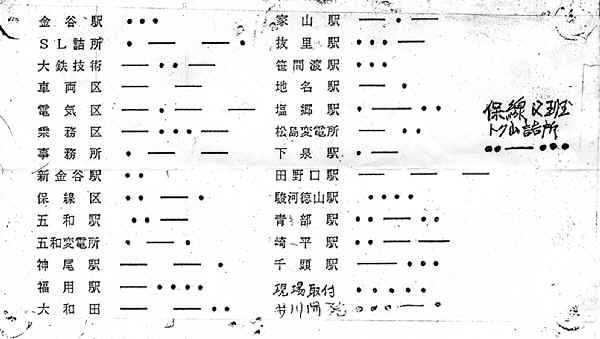 金谷駅 •••
SL詰所 • — — •
大鉄技術 — •• —
車両区 — —
電気区 — • — —
乗務区 — ••• —
事務所 • — —
新金谷駅 ••
保線区 •• — •
五和駅 •• —
五和変電所 • — •
神尾駅 — — •
福用駅 — ••••
大和田 — — ••
家山駅 — • —
抜里駅 ••• —
笹間渡駅 •••
地名駅 — •
塩郷駅 • — ••
松島変電所 — ••
下泉駅 • —
田野口駅 — — —
駿河徳山駅 ••••
青部駅 •• — ••
崎平駅 •• — —
千頭駅 — •••
現場取付 •••••
井川 ••• — •
保線区班
詰所
•• — •••